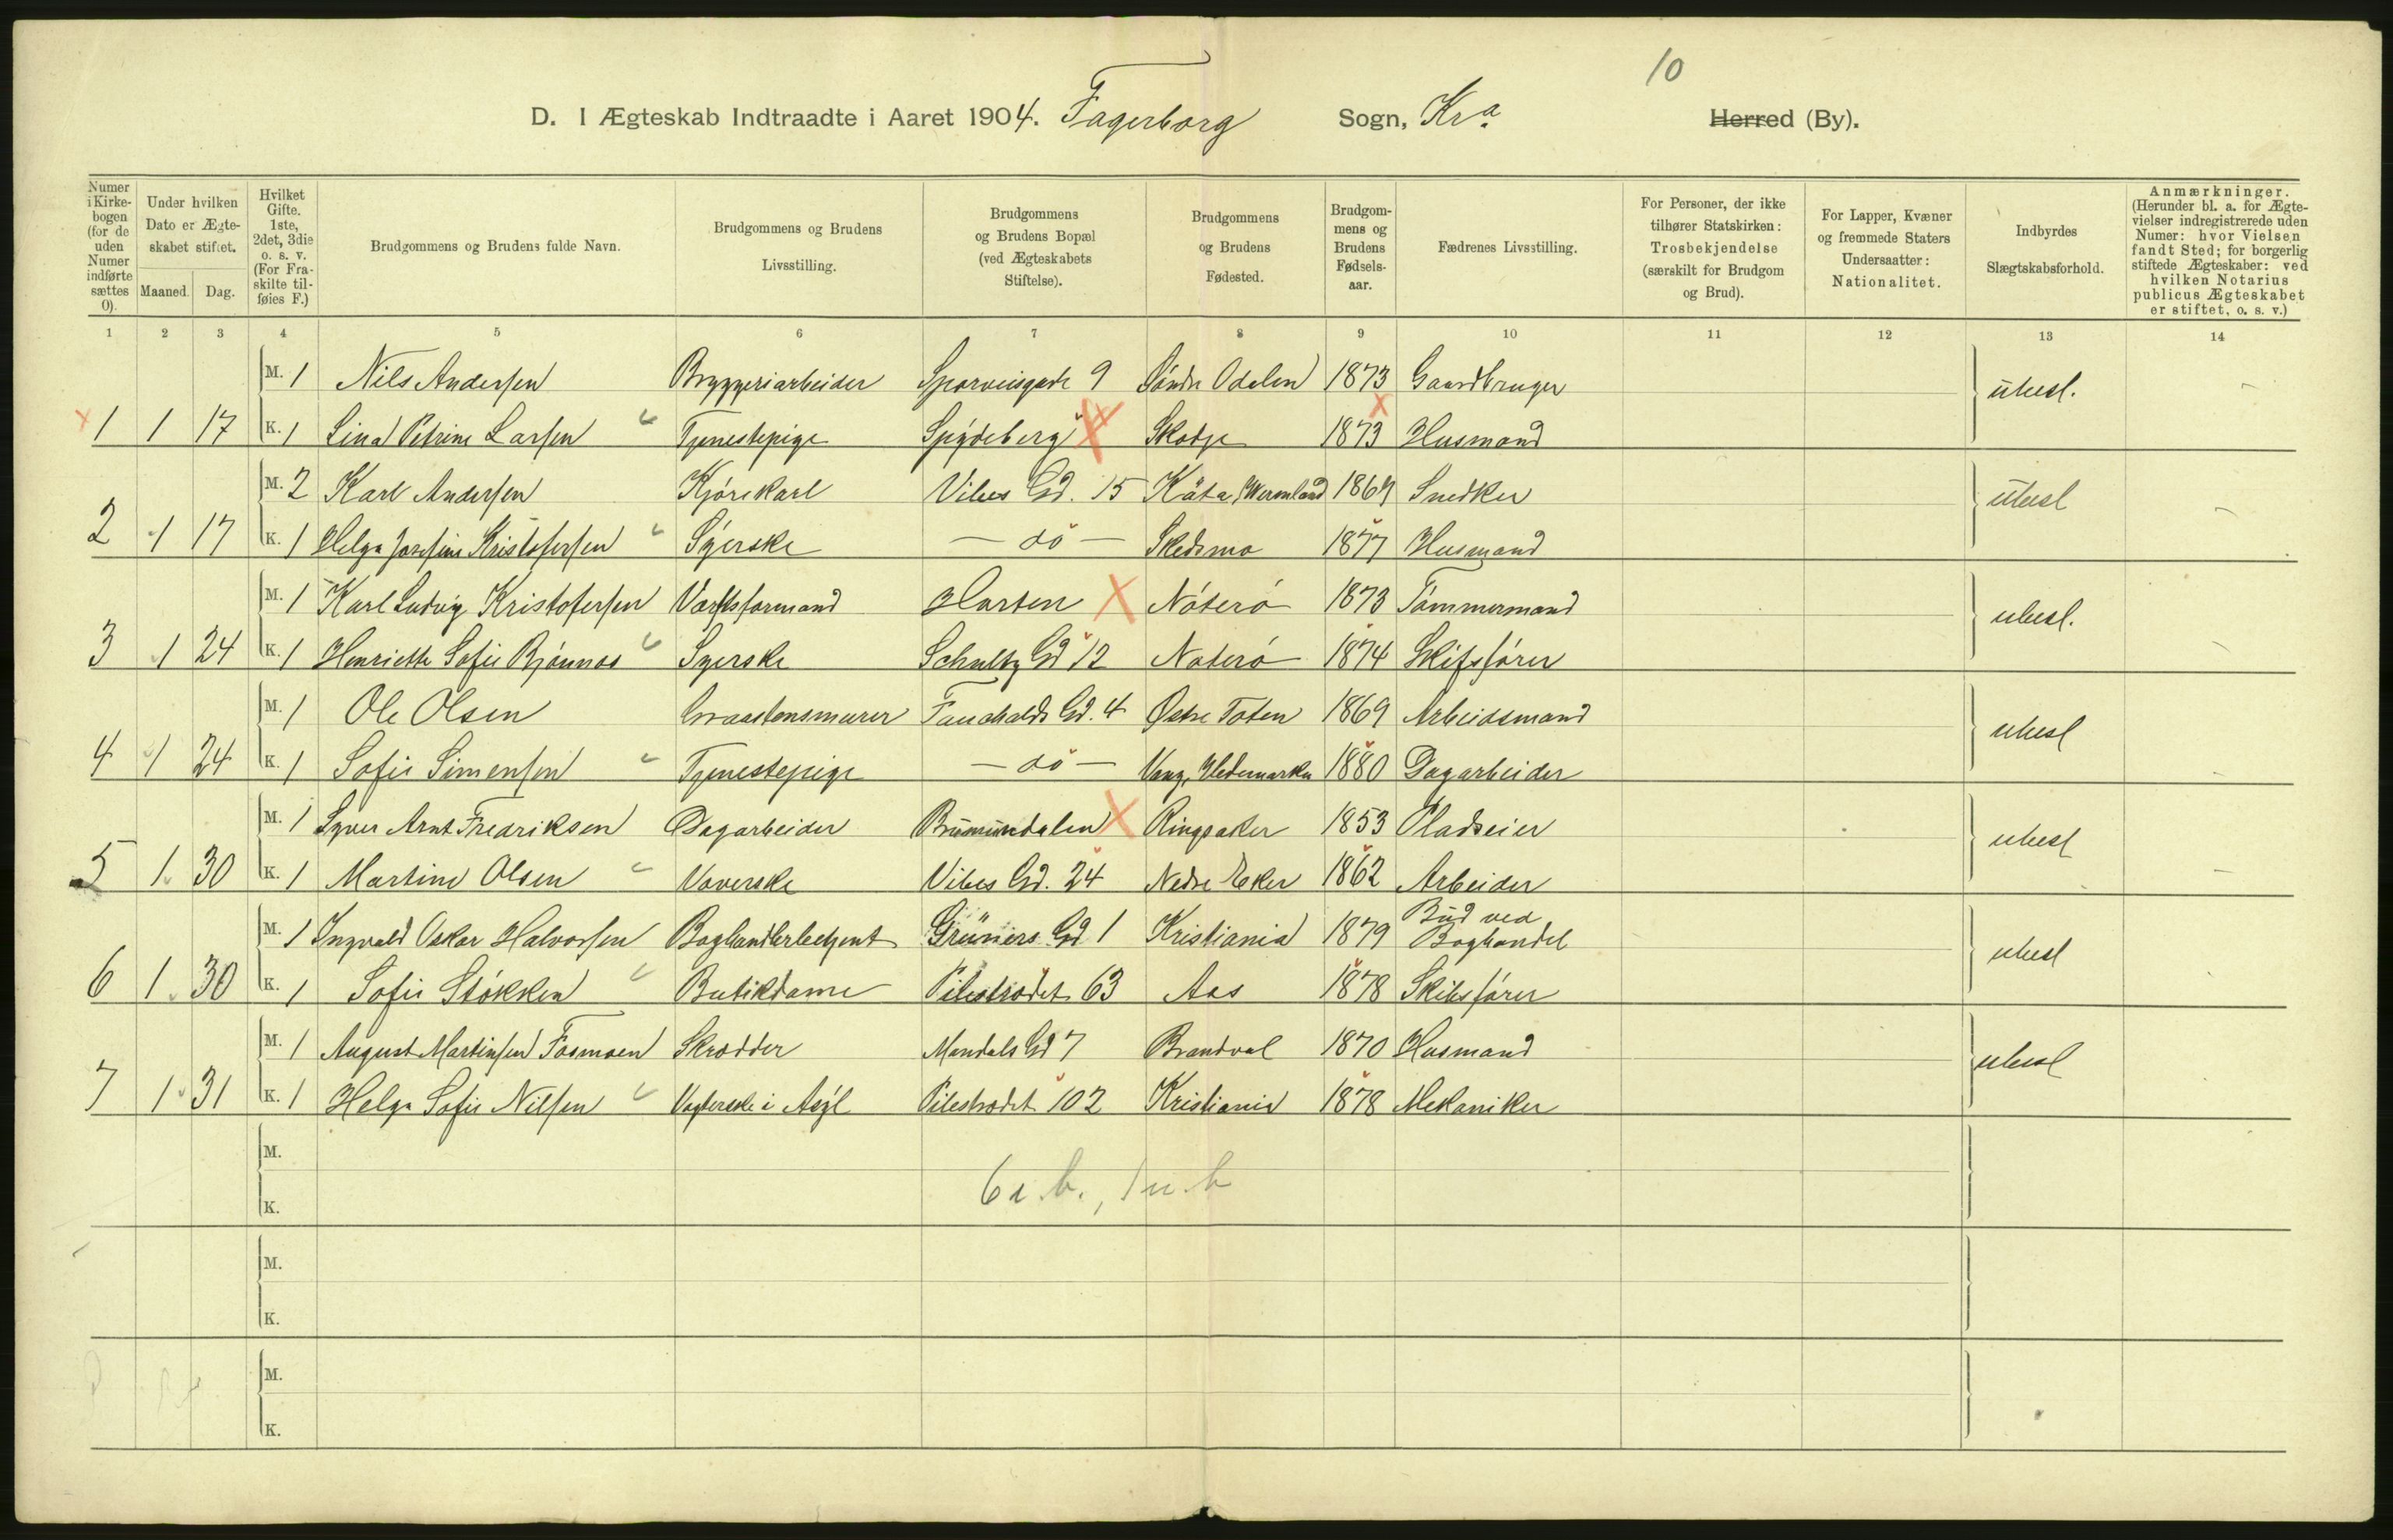 10
D. I Ægteskab Indtraadte i Aaret 1904. Fagerborg Sogn, Kra. Herred (By).
Numer i Kirkebogen (for de uden Numer indførte sættes 0). | Under hvilken Dato er Ægteskabet stiftet. Maaned. Dag. | Hvilket Gifte. 1ste, 2det, 3die o. s. v. (For Fraskilte tilføies F.) | Brudgommens og Brudens fulde Navn. | Brudgommens og Brudens Livsstilling. | Brudgommens og Brudens Bopæl (ved Ægteskabets Stiftelse). | Brudgommens og Brudens Fødested. | Brudgommens og Brudens Fødselsaar. | Fædrenes Livsstilling. | For Personer, der ikke tilhører Statskirken: Trosbekjendelse (særskilt for Brudgom og Brud). | For Lapper, Kvæner og fremmede Staters Undersaatter: Nationalitet. | Indbyrdes Slægtskabsforhold. | Anmærkninger. (Herunder bl. a. for Ægtevielser indregistrerede uden Numer: hvor Vielsen fandt Sted; for borgerlig stiftede Ægteskaber: ved hvilken Notarius publicus Ægteskabet er stiftet, o. s. v.)
1 2 3 4 5 6 7 8 9 10 11 12 13 14
M. 1 Nils Andersen Bryggeriarbeider Sporveisgade 9 Søndre Odalen 1873 Gaardbruger ubesl.
1 1 17 K. 1 Lina Petrine Larsen Tjenestepige Spydeberg Skodje 1873 Husmand
M. 2 Karl Andersen Kjørekarl Vibes Gd. 15 Wermland 1869 Snedker ubesl
2 1 17 K. 1 Helga Josefine Kristofersen Syerske — do — Skedsmo 1877 Husmand
M. 1 Karl Ludvig Kristofersen Værftsformand Horten Nøterø 1873 Tømmermand ubesl.
3 1 24 K. 1 Henriette Sofie Bjønnes Syerske Schultz Gd 12 Nøterø 1874 Skibsfører
M. 1 Ole Olsen Graastensmurer Fauchalds Gd. 4 Østre Toten 1869 Arbeidsmand ubesl
4 1 24 K. 1 Sofie Simensen Tjenestepige — do — Vang, Hedemarken 1880 Dagarbeider
M. 1 Syver Arnt Fredriksen Dagarbeider Brumundalen Ringsaker 1853 Pladseier ubesl
5 1 30 K. 1 Martine Olsen Væverske Vibes Gd. 24 Nedre Eker 1862 Arbeider
M. 1 Ingvald Oskar Halvorsen Boghandlerbetjent Grüners Gd 1 Kristiania 1879 Bud ved Boghandel ubesl
6 1 30 K. 1 Sofie Støkken Butikdame Pilestrædet 63 Aas 1878 Skibsfører
M. 1 August Martinsen Fosmoen Skrædder Mandals Gd 7 Brandval 1870 Husmand ubesl
7 1 31 K. 1 Helga Sofie Nilsen Vogterske i Asyl Pilestrædet 102 Kristiania 1878 Mekaniker
M.
6 i. b., 1 u. b
K.
M.
K.
M.
K.